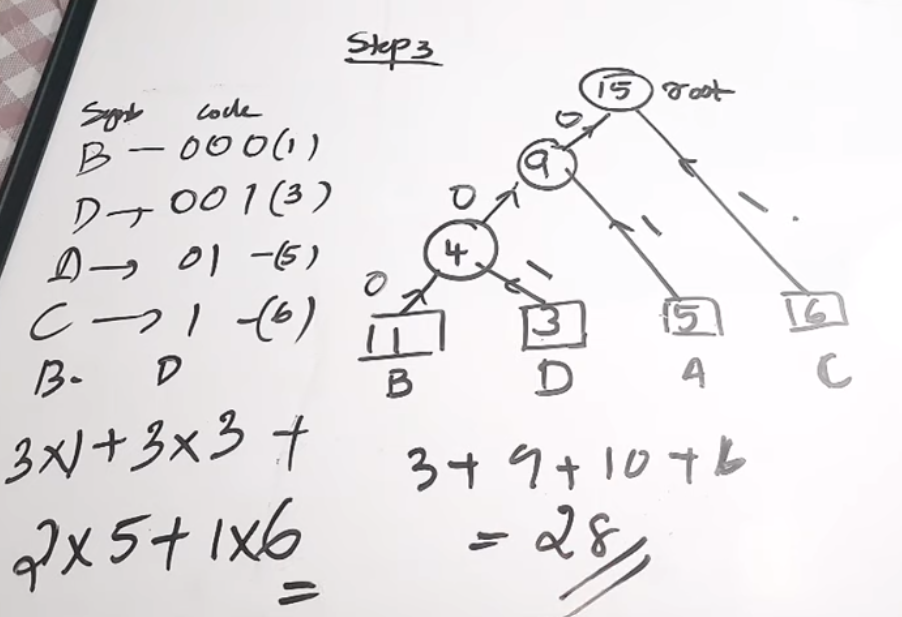 Step 3
Symb code
B – 000(1)
D → 001(3)
A → 01 -(5)
C → 1 -(6)
B- D
3x1+3x3 +
2x5+1x6
=
15 root
0
9
0 1
4 1
0 1
1 3 5 6
B D A C
3+9+10+6
= 28